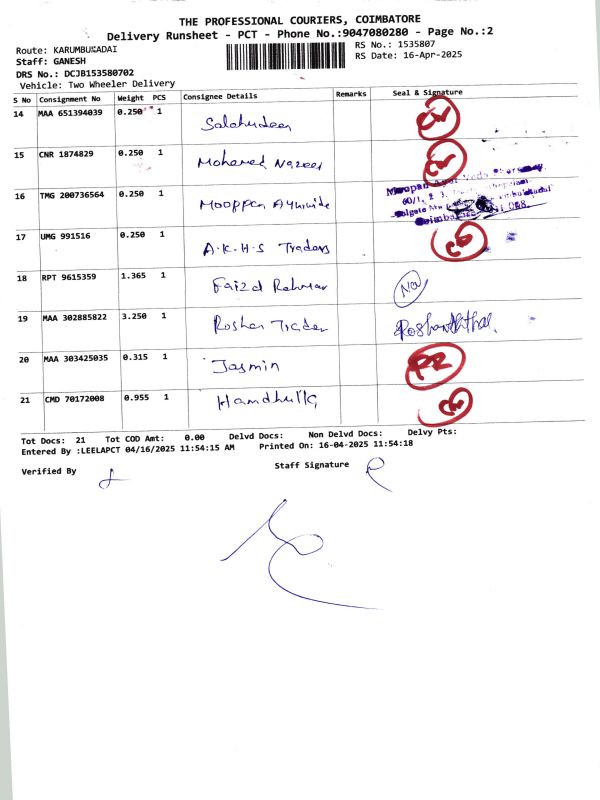 THE PROFESSIONAL COURIERS, COIMBATORE
Delivery Runsheet - PCT - Phone No.:9047080280 - Page No.:2
Route: KARUMBUKADAI
RS No.: 1535807
Staff: GANESH
RS Date: 16-Apr-2025
DRS No.: DCJB153580702
Vehicle: Two Wheeler Delivery
S No Consignment No Weight PCS Consignee Details Remarks Seal & Signature
14 MAA 651394039 0.250 1 Salahudeen
15 CNR 1874829 0.250 1 Mohamed Nazeer
16 TMG 200736564 0.250 1 Mooppan
17 UMG 991516 0.250 1 A.K.H.S Traders
18 RPT 9615359 1.365 1 Faizal Rahman
19 MAA 302885822 3.250 1 Roshan Trader
20 MAA 303425035 0.315 1 Jasmin PR
21 CMD 70172008 0.955 1
Tot Docs: 21 Tot COD Amt: 0.00 Delvd Docs: Non Delvd Docs: Delvy Pts:
Entered By :LEELAPCT 04/16/2025 11:54:15 AM Printed On: 16-04-2025 11:54:18
Verified By Staff Signature